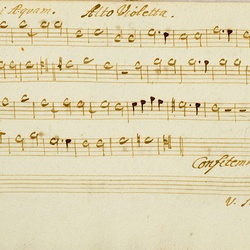 i Aquam. Alto Violetta.
Confitemi
V. S